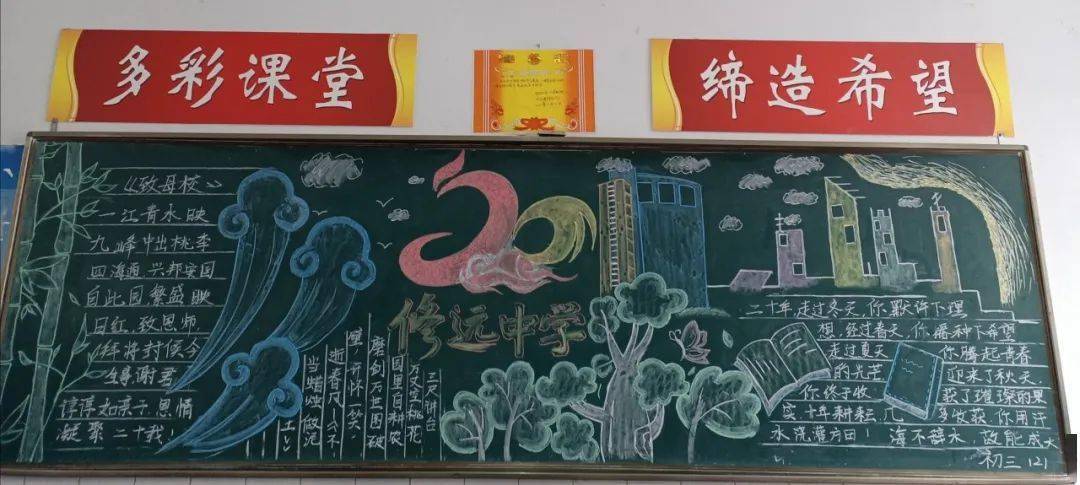 多彩课堂
缔造希望
《致母校》
一江青水映
九峰中出桃李
四海通兴邦安国
自此园繁盛映
日红,致恩师
拜将封候今
缘谢君
谆谆如亲子.恩情
凝聚二十载!
20
修远中学
三尺讲台
万丈空桃花
园里自耕农
磨剑万世图破
壁,开怀一笑,
逝春风一分不
当蜡烛做泥
二十年,走过冬天,你默许下理
想,经过春天,你播种下希望
走过夏天 你腾起青春
的光芒 迎来了秋天
你终于收 获了璀璨的果
实十年耕耘 几多收获 你用汗
水浇灌方田! 海不辞水,故能成大
初三121